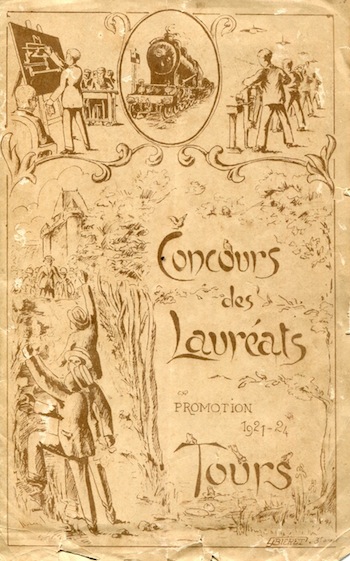 Concours
des
Lauréats
PROMOTION
1921-24
Tours